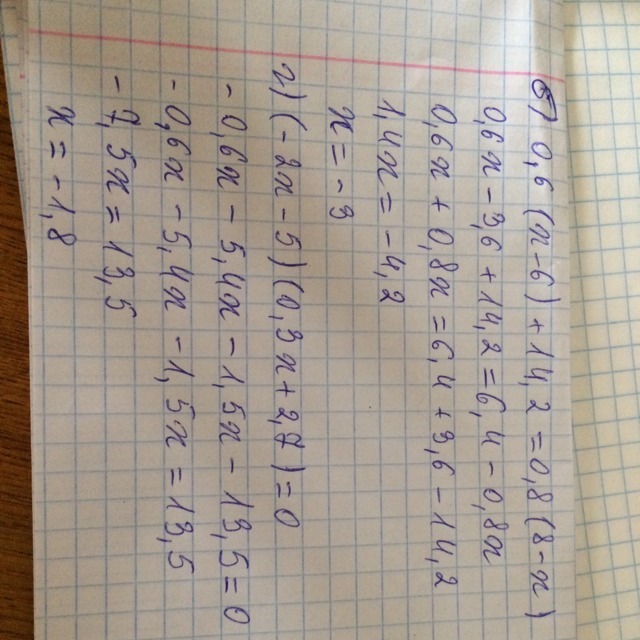 б) 0,6 (x-6) + 14,2 = 0,8 (8-x)
0,6x - 3,6 + 14,2 = 6,4 - 0,8x
0,6x + 0,8x = 6,4 + 3,6 - 14,2
1,4x = -4,2
x = -3
2) (-2x - 5) (0,3x + 2,7) = 0
- 0,6x - 5,4x - 1,5x - 13,5 = 0
- 0,6x - 5,4x - 1,5x = 13,5
- 7,5x = 13,5
x = -1,8